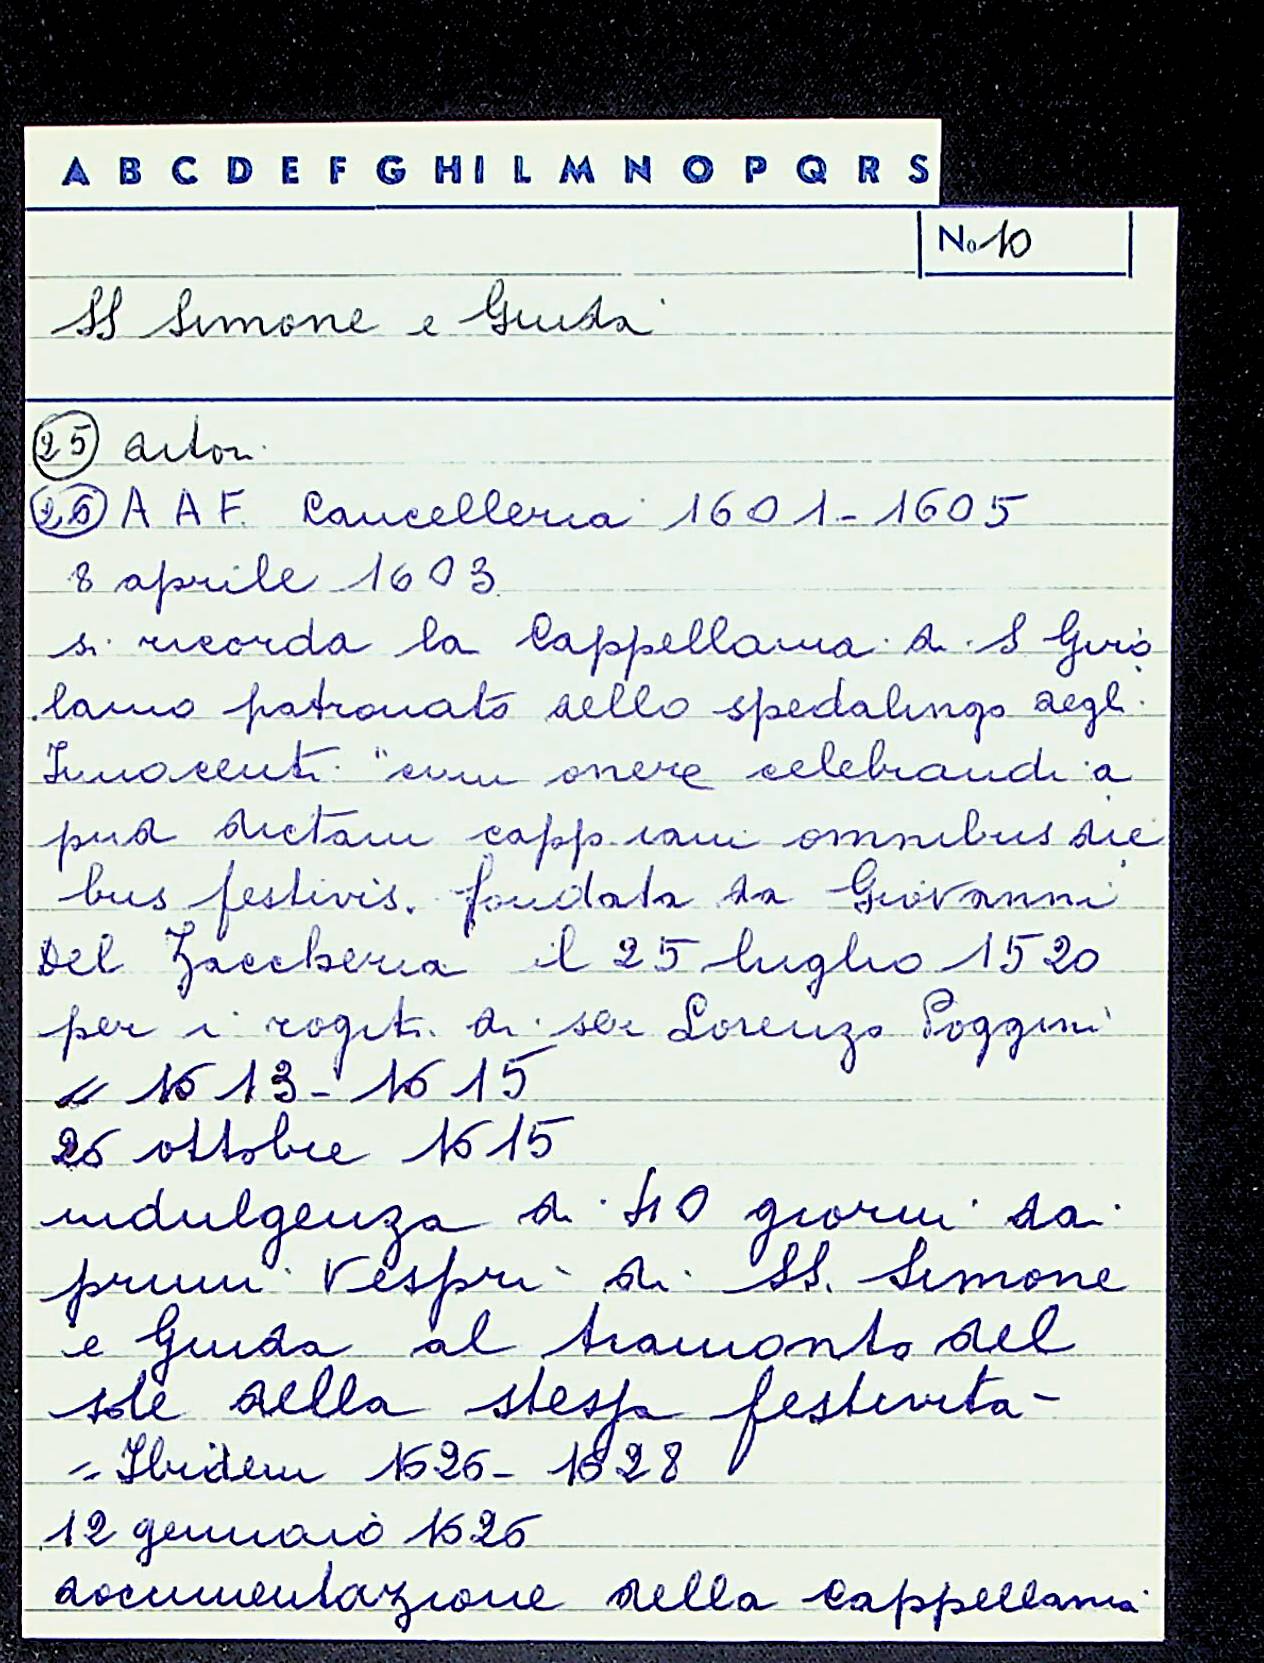 A B C D E F G H I L M N O P Q R S
No 10
SS Simone e Giuda
25 autori
26 A A F. Cancelleria 1601-1605
8 aprile 1603
si ricorda la Cappellania di S Giro
lamo patronato dello spedalingo degli
Innocenti "cum onere celebrandi a
pud dictam capp.iani omnibus die
bus festivis. fondata da Giovanni
Del Zaccheria il 25 luglio 1520
per i rogiti di ser Lorenzo Poggini
= 1613-1615
26 ottobre 1615
indulgenza di 40 giorni dai
primi Vespri di SS. Simone
e Giuda al tramonto del
sole della stessa festività -
= Ibidem 1626- 1628
12 gennaio 1626
documentazione della cappellania